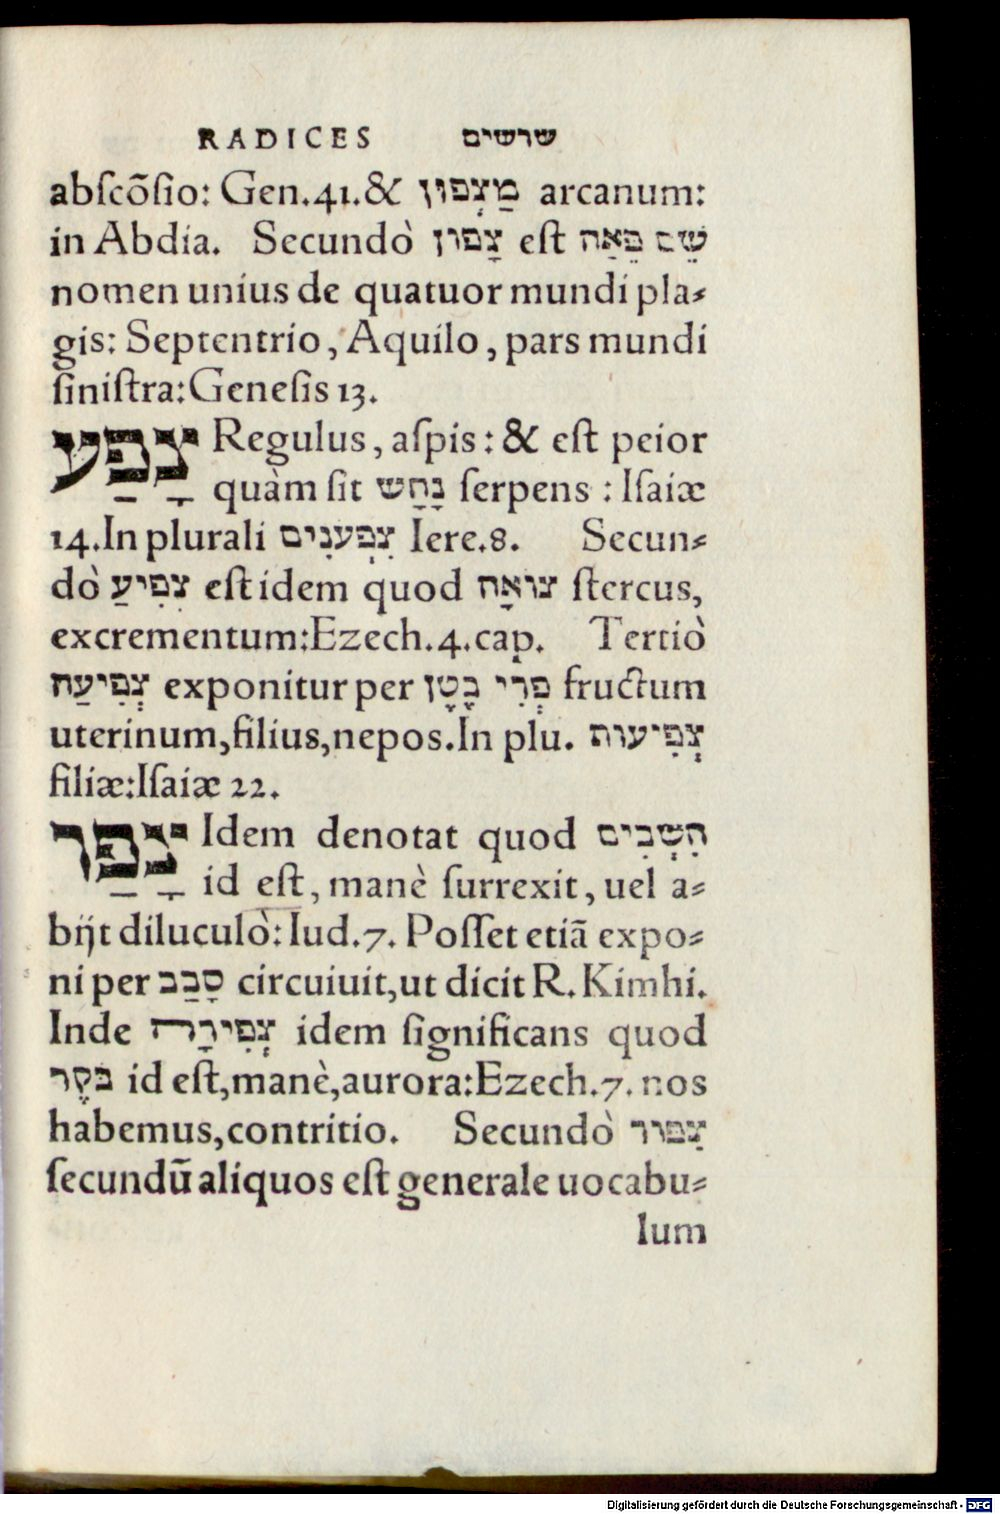 RADICES שרשים
abſcõſio: Gen.41.& מַצְפּון arcanum:
in Abdia. Secundò צָפון est שֵׁם פֵּאָה
nomen unius de quatuor mundi pla⸗
gis: Septentrio, Aquilo, pars mundi
ſiniſtra: Geneſis 13.
צָפַּע Regulus, aſpis: & eſt peior
quàm ſit נָחָש ſerpens: Iſaiæ
14. In plurali צִפְעֹנִים Iere.8. Secun⸗
dò צִפִיעַ eſt idem quod צוּאָה ſtercus,
excrementum: Ezech.4.cap. Tertiò
צְפִיעַת exponitur per פְרִי בָטָן fructum
uterinum, filius, nepos. In plu. צְפִיעות
filiæ: Iſaiæ 22.
צָפַּר Idem denotat quod הִשְׁכִּים
id eſt, manè ſurrexit, uel a⸗
bijt diluculò: Iud.7. Poſſet etiã expo⸗
ni per סָבַב circuiuit, ut dicit R. Kimhi.
Inde צְפִירָה idem ſignificans quod
בֹּקֶר id eſt, manè, aurora: Ezech.7. nos
habemus, contritio. Secundò צִפּור
ſecundũ aliquos eſt generale uocabu⸗
lum
Digitalisierung gefördert durch die Deutsche Forschungsgemeinschaft - DFG